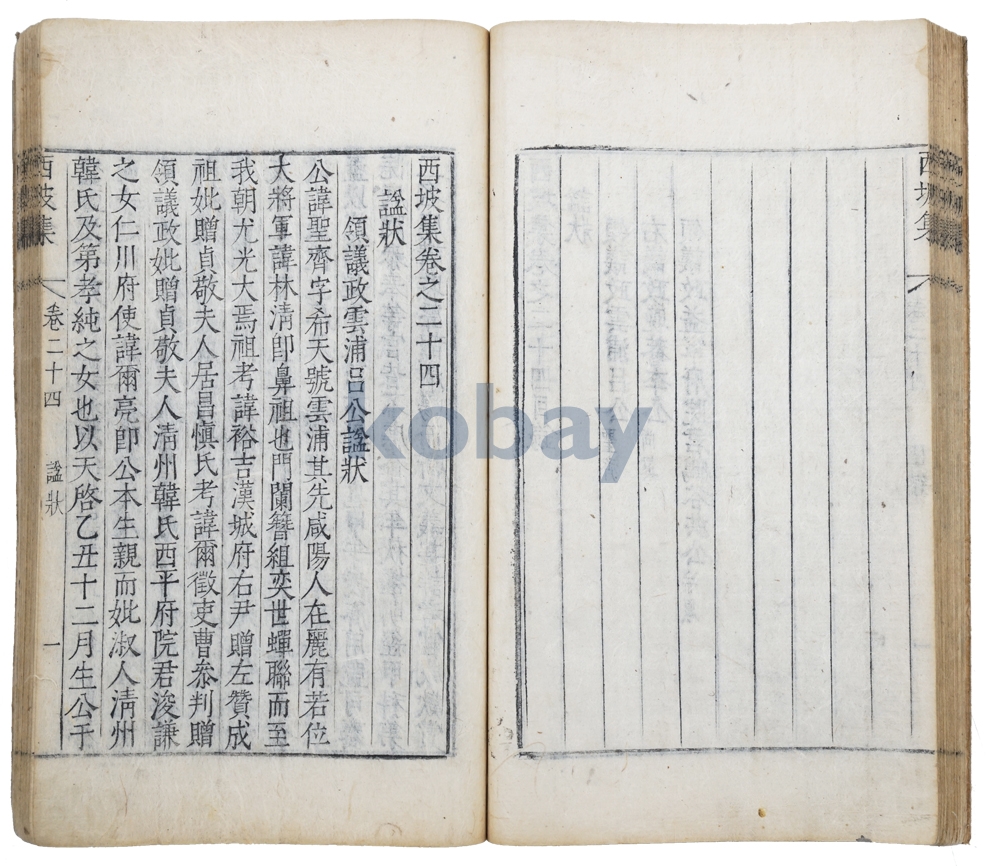 西坡集卷之二十四
諡狀
領議政雲浦呂公諡狀
公諱聖齊字希天號雲浦其先咸陽人在麗有若位
大將軍諱林淸卽鼻祖也門闌簪組奕世蟬聯而至
我朝尤光大焉祖考諱裕吉漢城府右尹贈左贊成
祖妣贈貞敬夫人居昌愼氏考諱爾徵吏曹叅判贈
領議政妣贈貞敬夫人淸州韓氏西平府院君浚謙
之女仁川府使諱爾亮卽公本生親而妣淑人淸州
韓氏及第孝純之女也以天啓乙丑十二月生公于
西坡集 卷二十四 諡狀 一
西坡集
kobay